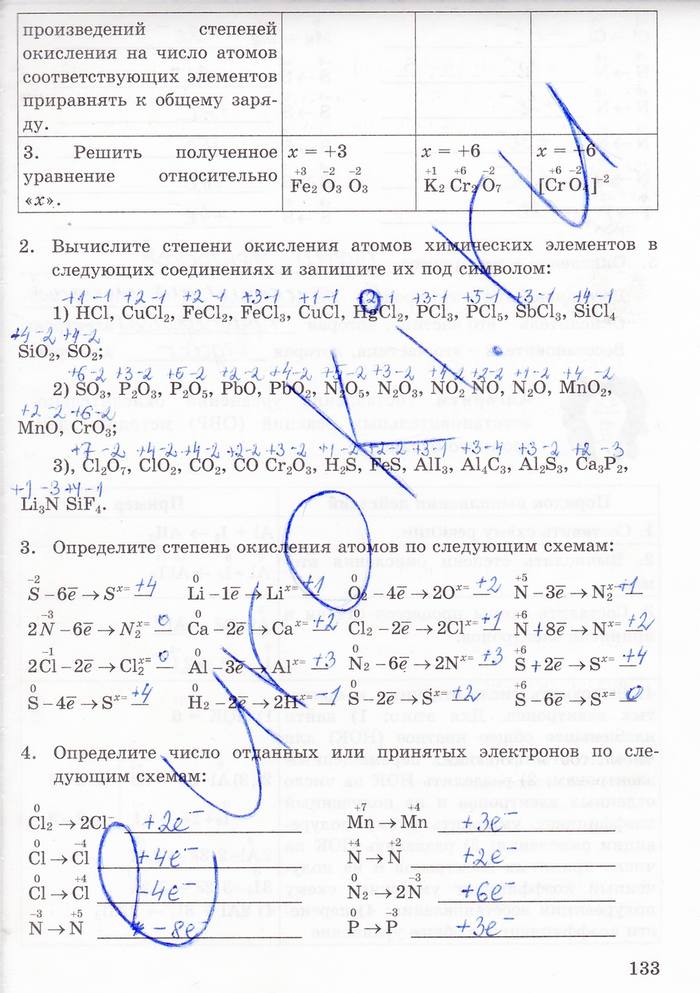 произведений степеней
окисления на число атомов
соответствующих элементов
приравнять к общему заря-
ду.
3. Решить полученное
уравнение относительно
«x».
x = +3
+3 -2 -2
Fe₂ O₃ O₃
x = +6
+1 +6 -2
K₂ Cr₂ O₇
x = +6
+6 -2
[Cr O₄]⁻²
2. Вычислите степени окисления атомов химических элементов в
следующих соединениях и запишите их под символом:
+1 -1 +2 -1 +2 -1 +3 -1 +1 -1 +2 -1 +3 -1 +5 -1 +3 -1 +4 -1
1) HCl, CuCl₂, FeCl₂, FeCl₃, CuCl, HgCl₂, PCl₃, PCl₅, SbCl₃, SiCl₄
+4 -2 +4 -2
SiO₂, SO₂;
+6 -2 +3 -2 +5 -2 +2 -2 +4 -2 +5 -2 +3 -2 +4 -2 +2 -2 +1 -2 +4 -2
2) SO₃, P₂O₃, P₂O₅, PbO, PbO₂, N₂O₅, N₂O₃, NO, NO, N₂O, MnO₂,
+2 -2 +6 -2
MnO, CrO₃;
+7 -2 +4 -2 +4 -2 +2 -2 +3 -2 +1 -2 +2 -2 +3 -1 +3 -4 +3 -2 +2 -3
3), Cl₂O₇, ClO₂, CO₂, CO Cr₂O₃, H₂S, FeS, AlI₃, Al₄C₃, Al₂S₃, Ca₃P₂,
+1 -3 +4 -1
Li₃N SiF₄.
3. Определите степень окисления атомов по следующим схемам:
-2 0 0 +5
S – 6e → Sˣ⁼ +4 Li – 1e → Liˣ⁼ +1 O₂ – 4e → 2Oˣ⁼ +2 N – 3e → N₂ˣ⁼ +1
-3 0 0 +6
2N – 6e → N₂ˣ⁼ 0 Ca – 2e → Caˣ⁼ +2 Cl₂ – 2e → 2Clˣ⁼ +1 N + 8e → Nˣ⁼ +2
-1 0 0 +6
2Cl – 2e → Cl₂ˣ⁼ 0 Al – 3e → Alˣ⁼ +3 N₂ – 6e → 2Nˣ⁼ +3 S + 2e → Sˣ⁼ +4
0 0 0 +6
S – 4e → Sˣ⁼ +4 H₂ – 2e → 2Hˣ⁼ -1 S – 2e → Sˣ⁼ +2 S – 6e → Sˣ⁼ 0
4. Определите число отданных или принятых электронов по сле-
дующим схемам:
0
Cl₂ → 2Cl⁻ +2e⁻
+7 +4
Mn → Mn +3e⁻
0 -4
Cl → Cl +4e⁻
+4 +2
N → N +2e⁻
0 +4
Cl → Cl -4e⁻
0 -3
N₂ → 2N +6e⁻
-3 +5
N → N -8e⁻
0 -3
P → P +3e⁻
133